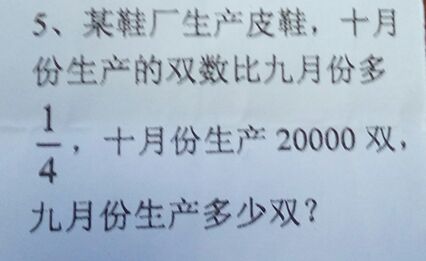 5、某鞋厂生产皮鞋，十月
份生产的双数比九月份多
1/4，十月份生产 20000 双，
九月份生产多少双？